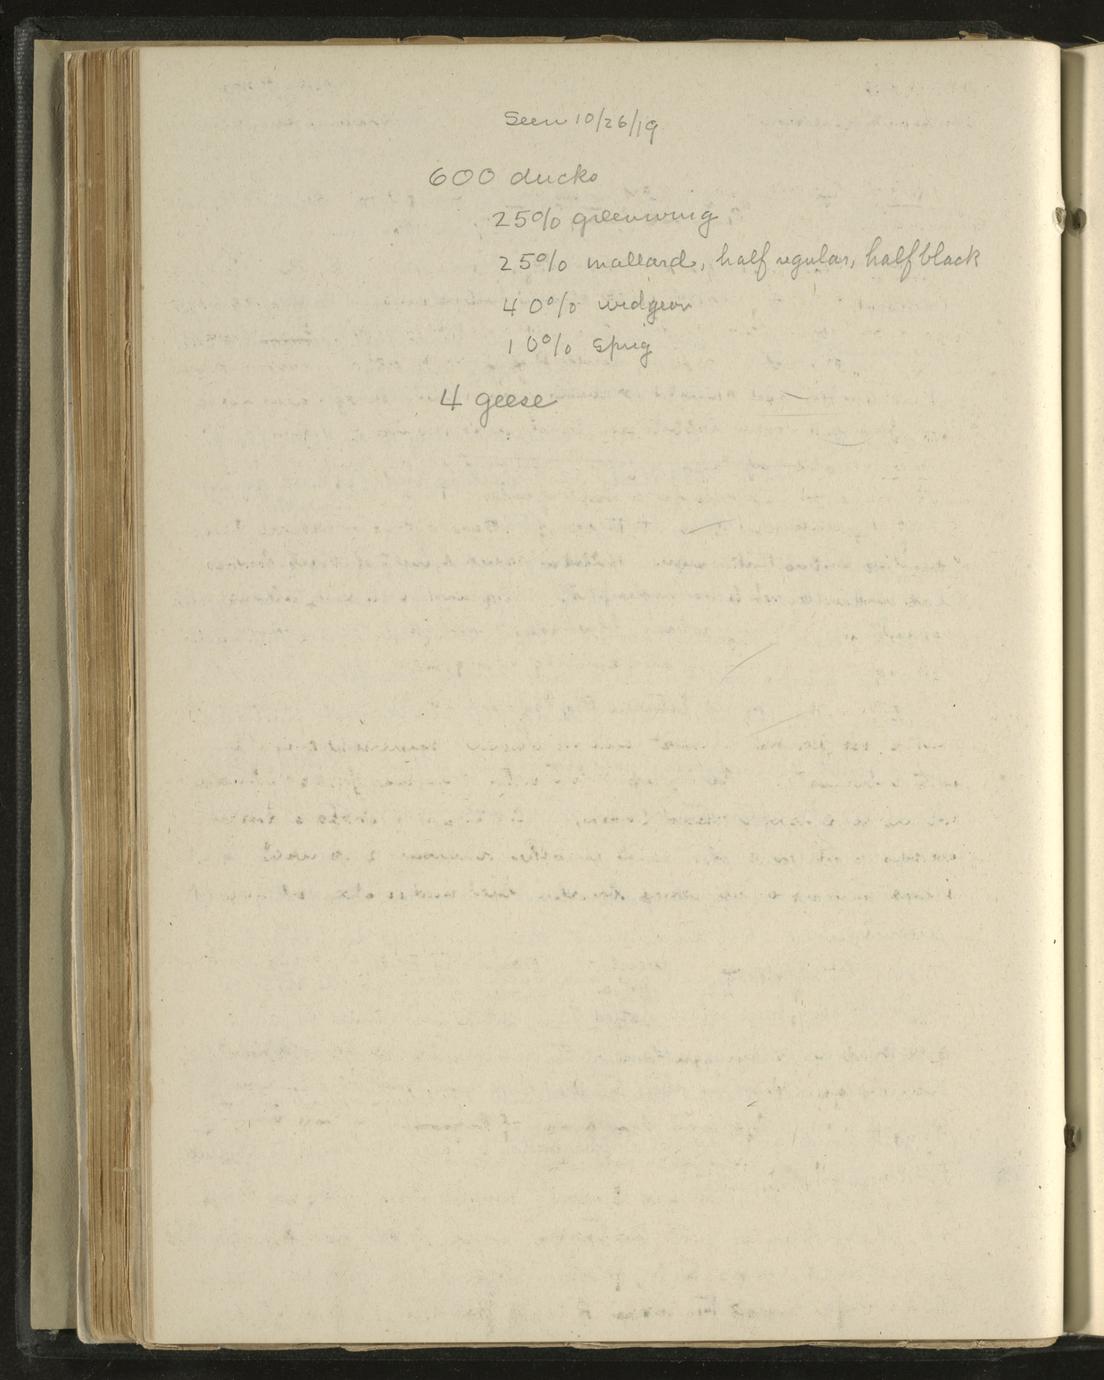 Seen 10/26/19
600 ducks
25% greenwing
25% mallard, half regular, half black
40% widgeon
10% sprig
4 geese